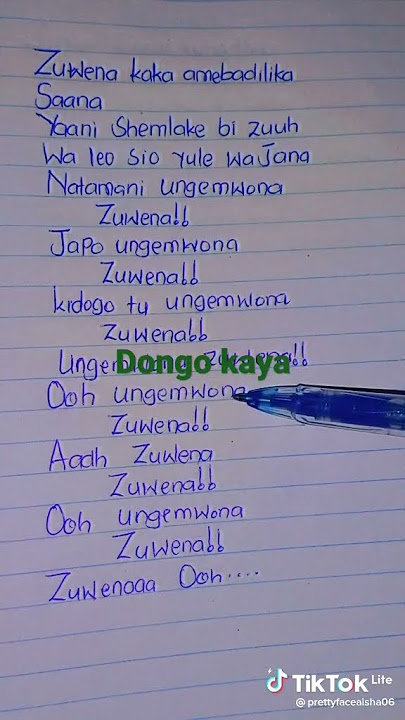 Zuwena kaka amebadilika
Saana
Yaani Shemlake bi zuuh
Wa leo sio yule wa Jana
Natamani ungemwona
Zuwena!!
Japo ungemwona
Zuwena!!
kidogo tu ungemwona
Zuwena!!
Zuwena!!
Dongo kaya
Ooh ungemwona
Zuwena!!
Aaah Zuwena
Zuwena!!
Ooh ungemwona
Zuwena!!
Zuwenaaa Ooh....
TikTok Lite
@prettyfaceaisha06